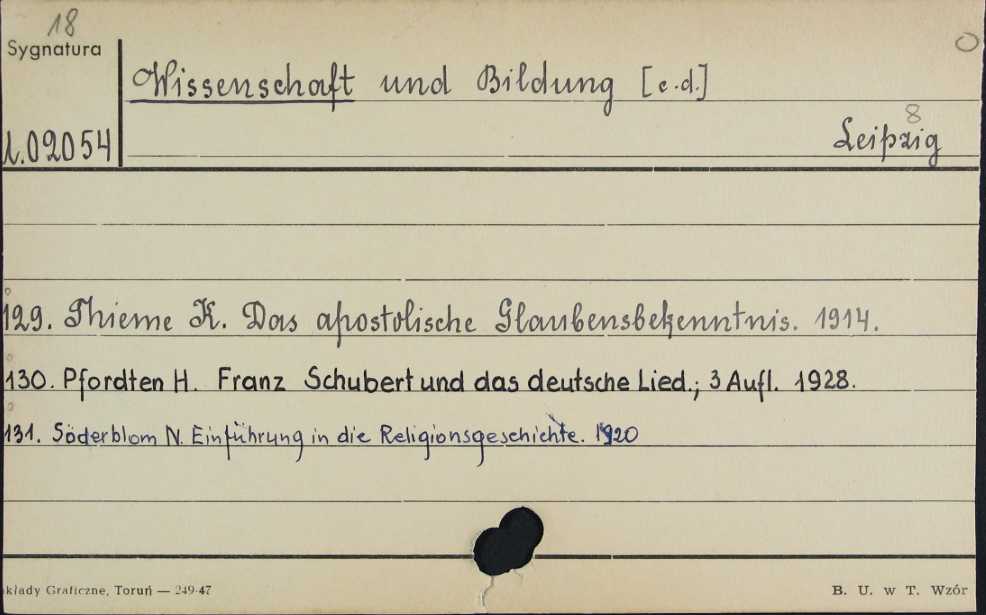 18
Sygnatura
Wissenschaft und Bildung [e.d.]
8
1.02054
Leipzig
129. Thieme K. Das apostolische Glaubensbekenntnis. 1914.
130. Pfordten H. Franz Schubert und das deutsche Lied.; 3 Aufl. 1928.
131. Söderblom N. Einführung in die Religionsgeschichte. 1920
kłady Graficzne, Toruń — 249-47
B. U. w T. Wzór